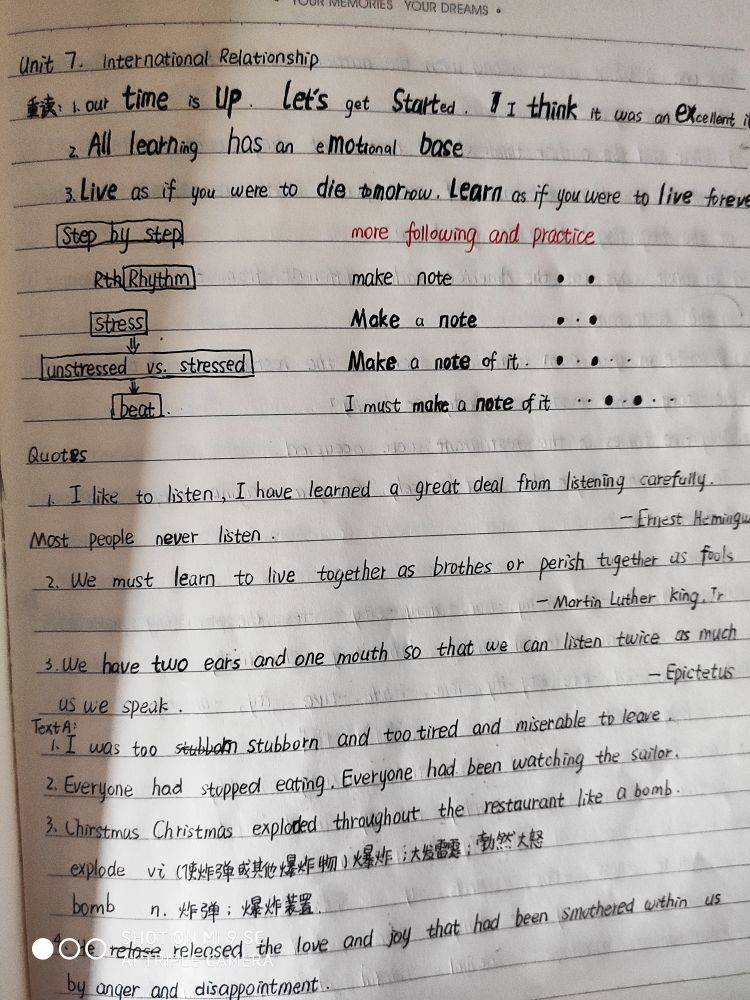 YOUR MEMORIES YOUR DREAMS •
Unit 7. International Relationship
重读: 1. our time is up. Let's get Started. I think it was an excellent
2. All learning has an emotional base
3. Live as if you were to die tomorrow. Learn as if you were to live foreve
Step by step more following and practice
Rth Rhythm make note • •
stress Make a note • · •
⇓
unstressed vs. stressed Make a note of it. • · • · ·
↓
beat. I must make a note of it · · • · • · ·
Quotes
1. I like to listen, I have learned a great deal from listening carefully.
Most people never listen. — Ernest Hemingw
2. We must learn to live together as brothes or perish together as fools
— Martin Luther king, Jr
3. We have two ears and one mouth so that we can listen twice as much
— Epictetus
as we speak.
Text A:
1. I was too stubborn stubborn and too tired and miserable to leave.
2. Everyone had stopped eating. Everyone had been watching the sailor.
3. Chirstmas Christmas exploded throughout the restaurant like a bomb.
explode vi (使炸弹或其他爆炸物) 爆炸; 大发雷霆; 勃然大怒
bomb n. 炸弹; 爆炸装置.
4. He relase released the love and joy that had been smothered within us
SHOT ON MI 9 SE
AI TRIPLE CAMERA
by anger and disappointment.